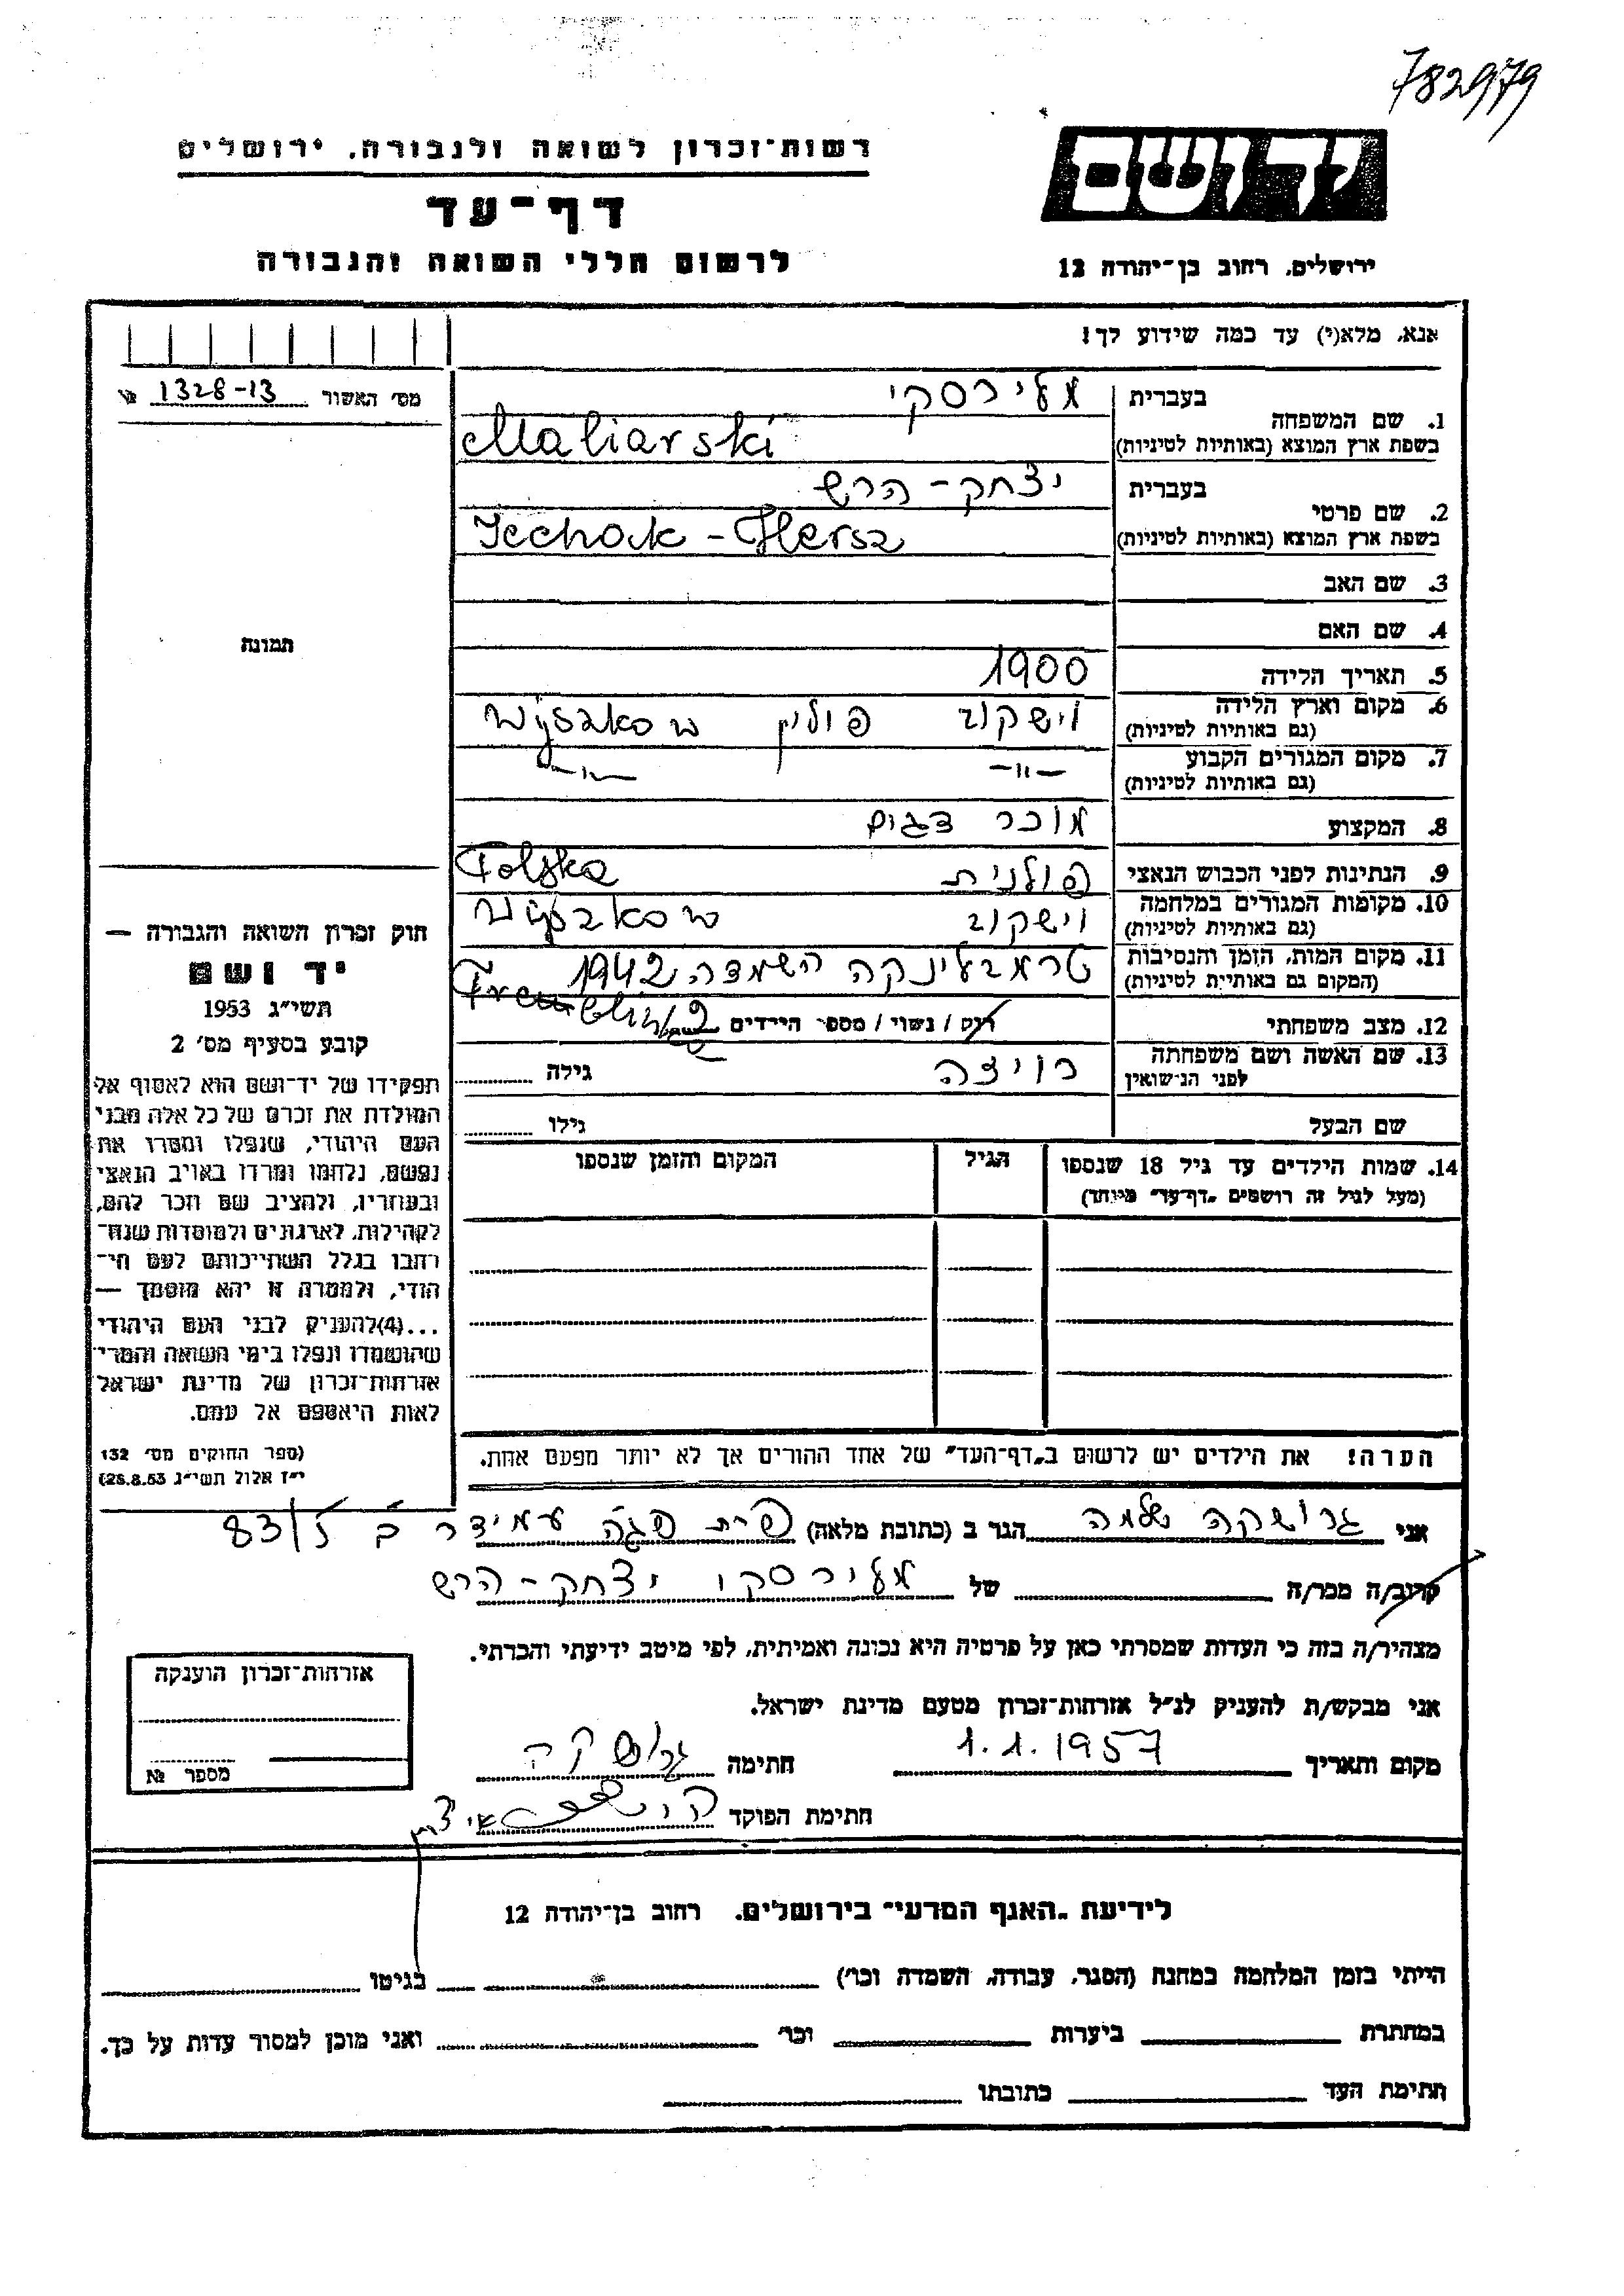 782979
יד ושם
רשות-זכרון לשואה ולגבורה, ירושלים
דף-עד
לרשום חללי השואה והגבורה
ירושלים, רחוב בן-יהודה 12
אנא, מלא(י) עד כמה שידוע לך!
מס' האשור 1328-13 №
תמונה
1. שם המשפחה
בעברית מלירסקי
בשפת ארץ המוצא (באותיות לטיניות) Maliarski
2. שם פרטי
בעברית יצחק-הרש
בשפת ארץ המוצא (באותיות לטיניות) Icchak-Hersz
3. שם האב
4. שם האם
5. תאריך הלידה 1900
6. מקום וארץ הלידה
(גם באותיות לטיניות) וישקוב פולין Wyszkow
7. מקום המגורים הקבוע
(גם באותיות לטיניות) -"- -"-
8. המקצוע מוכר דגים
9. הנתינות לפני הכבוש הנאצי פולנית Polska
10. מקומות המגורים במלחמה
(גם באותיות לטיניות) וישקוב Wyszkow
11. מקום המות, הזמן והנסיבות
(המקום גם באותיות לטיניות) טרמבלינקה השמדה 1942
12. מצב משפחתי רוק / נשוי / מספר הילדים 2
13. שם האשה ושם משפחתה
לפני הנישואין רויצה גילה
שם הבעל גילו
14. שמות הילדים עד גיל 18 שנספו הגיל המקום והזמן שנספו
(מעל לגיל זה רושמים "דף-עד" מיוחד)
הערה! את הילדים יש לרשום ב"דף-העד" של אחד ההורים אך לא יותר מפעם אחת.
חוק זכרון השואה והגבורה —
יד ושם
תשי"ג 1953
קובע בסעיף מס' 2
תפקידו של יד-ושם הוא לאסוף אל
המולדת את זכרם של כל אלה מבני
העם היהודי, שנפלו ומסרו את
נפשם, נלחמו ומרדו באויב הנאצי
ובעוזריו, ולהציב שם וזכר להם,
לקהילות, לארגונים ולמוסדות שנח-
רבו בגלל השתייכותם לעם הי-
הודי, ולמטרה זו יהא מוסמך —
...(4)להעניק לבני העם היהודי
שהושמדו ונפלו בימי השואה והמרי
אזרחות-זכרון של מדינת ישראל
לאות היאספם אל עמם.
(ספר החוקים מס' 132
י"ז אלול תשי"ג 28.8.53)
אני גרושקה שלמה הגר ב (כתובת מלאה) עמידר ב 83/
קרוב/ה מכר/ה של מלירסקי יצחק-הרש
מצהיר/ה בזה כי העדות שמסרתי כאן על פרטיה היא נכונה ואמיתית, לפי מיטב ידיעתי והכרתי.
אני מבקש/ת להעניק לנ"ל אזרחות-זכרון מטעם מדינת ישראל.
מקום ותאריך 1.1.1957 חתימה גרושקה
חתימת הפוקד
אזרחות-זכרון הוענקה
מספר №
לידיעת "האגף המדעי" בירושלים, רחוב בן-יהודה 12
הייתי בזמן המלחמה במחנה (הסגר, עבודה, השמדה וכו') בגיטו
במחתרת ביערות וכו' ואני מוכן למסור עדות על כך.
חתימת העד כתובתו